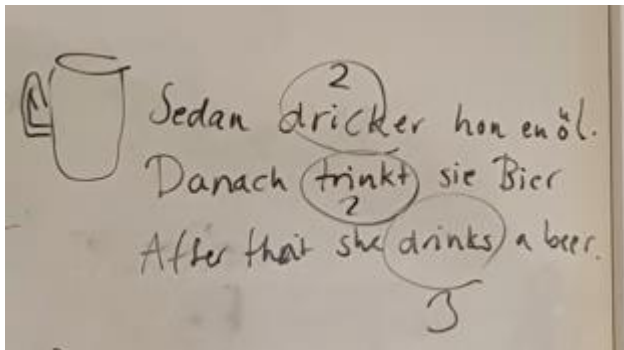 2
Sedan dricker hon en öl.
Danach trinkt sie Bier
2
After that she drinks a beer.
3